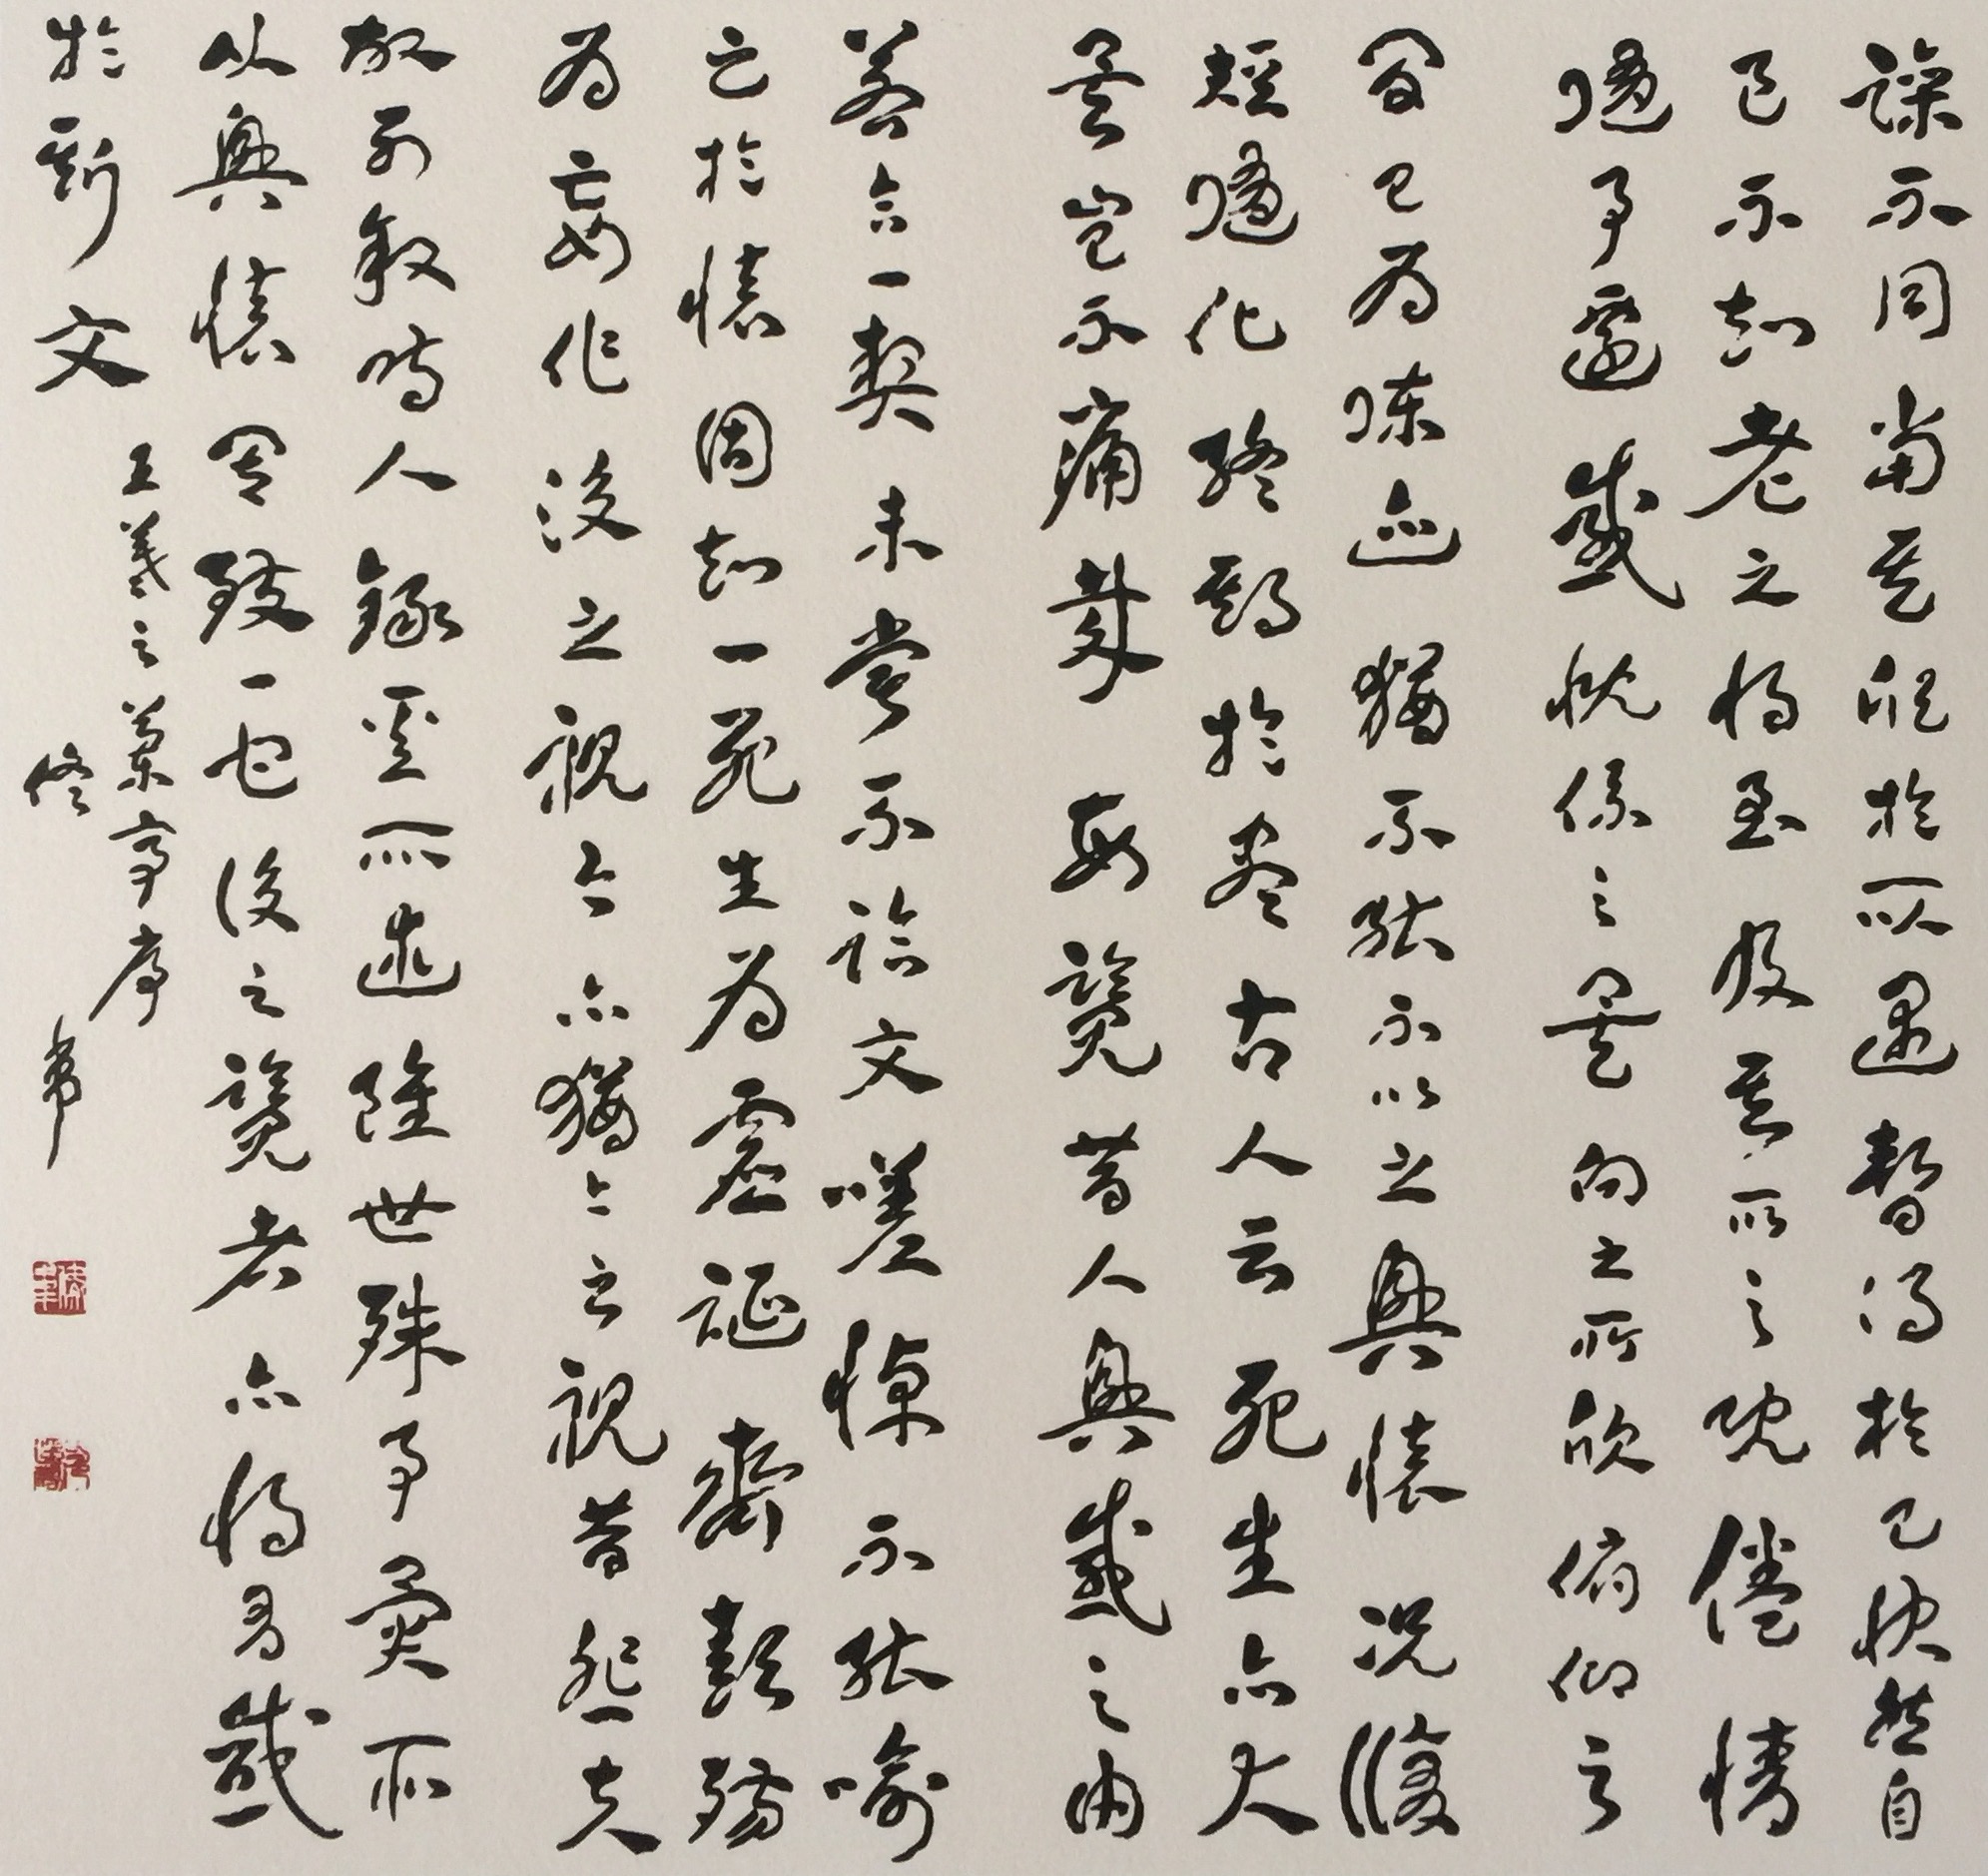 躁不同當其欣於所遇暫得於己快然自
足不知老之將至及其所之既倦情
隨事遷感慨係之矣向之所欣俯仰之
間已為陳迹猶不能不以之興懷況修
短隨化終期於盡古人云死生亦大
矣豈不痛哉每覽昔人興感之由
若合一契未嘗不臨文嗟悼不能喻
之於懷固知一死生為虛誕齊彭殤
為妄作後之視今亦猶今之視昔悲夫
故列敘時人錄其所述雖世殊事異所
以興懷其致一也後之覽者亦將有感
於斯文
王羲之蘭亭序
佟韋